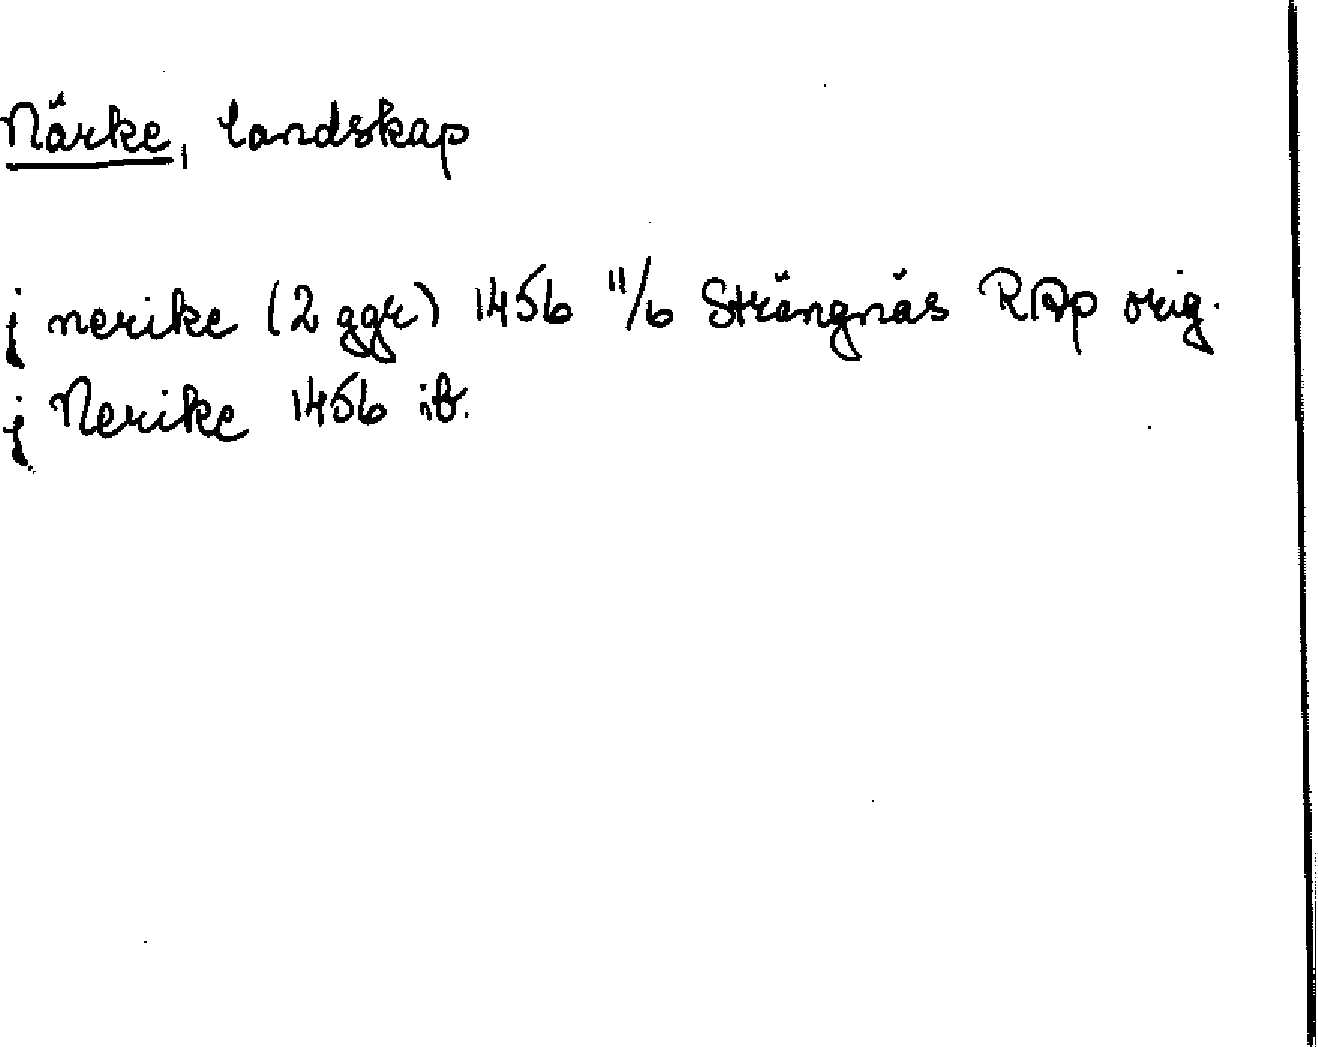 Närke, landskap
j nerike (2 ggr) 1456 11/6 Strängnäs RAp orig.
j Nerike 1456 ib.